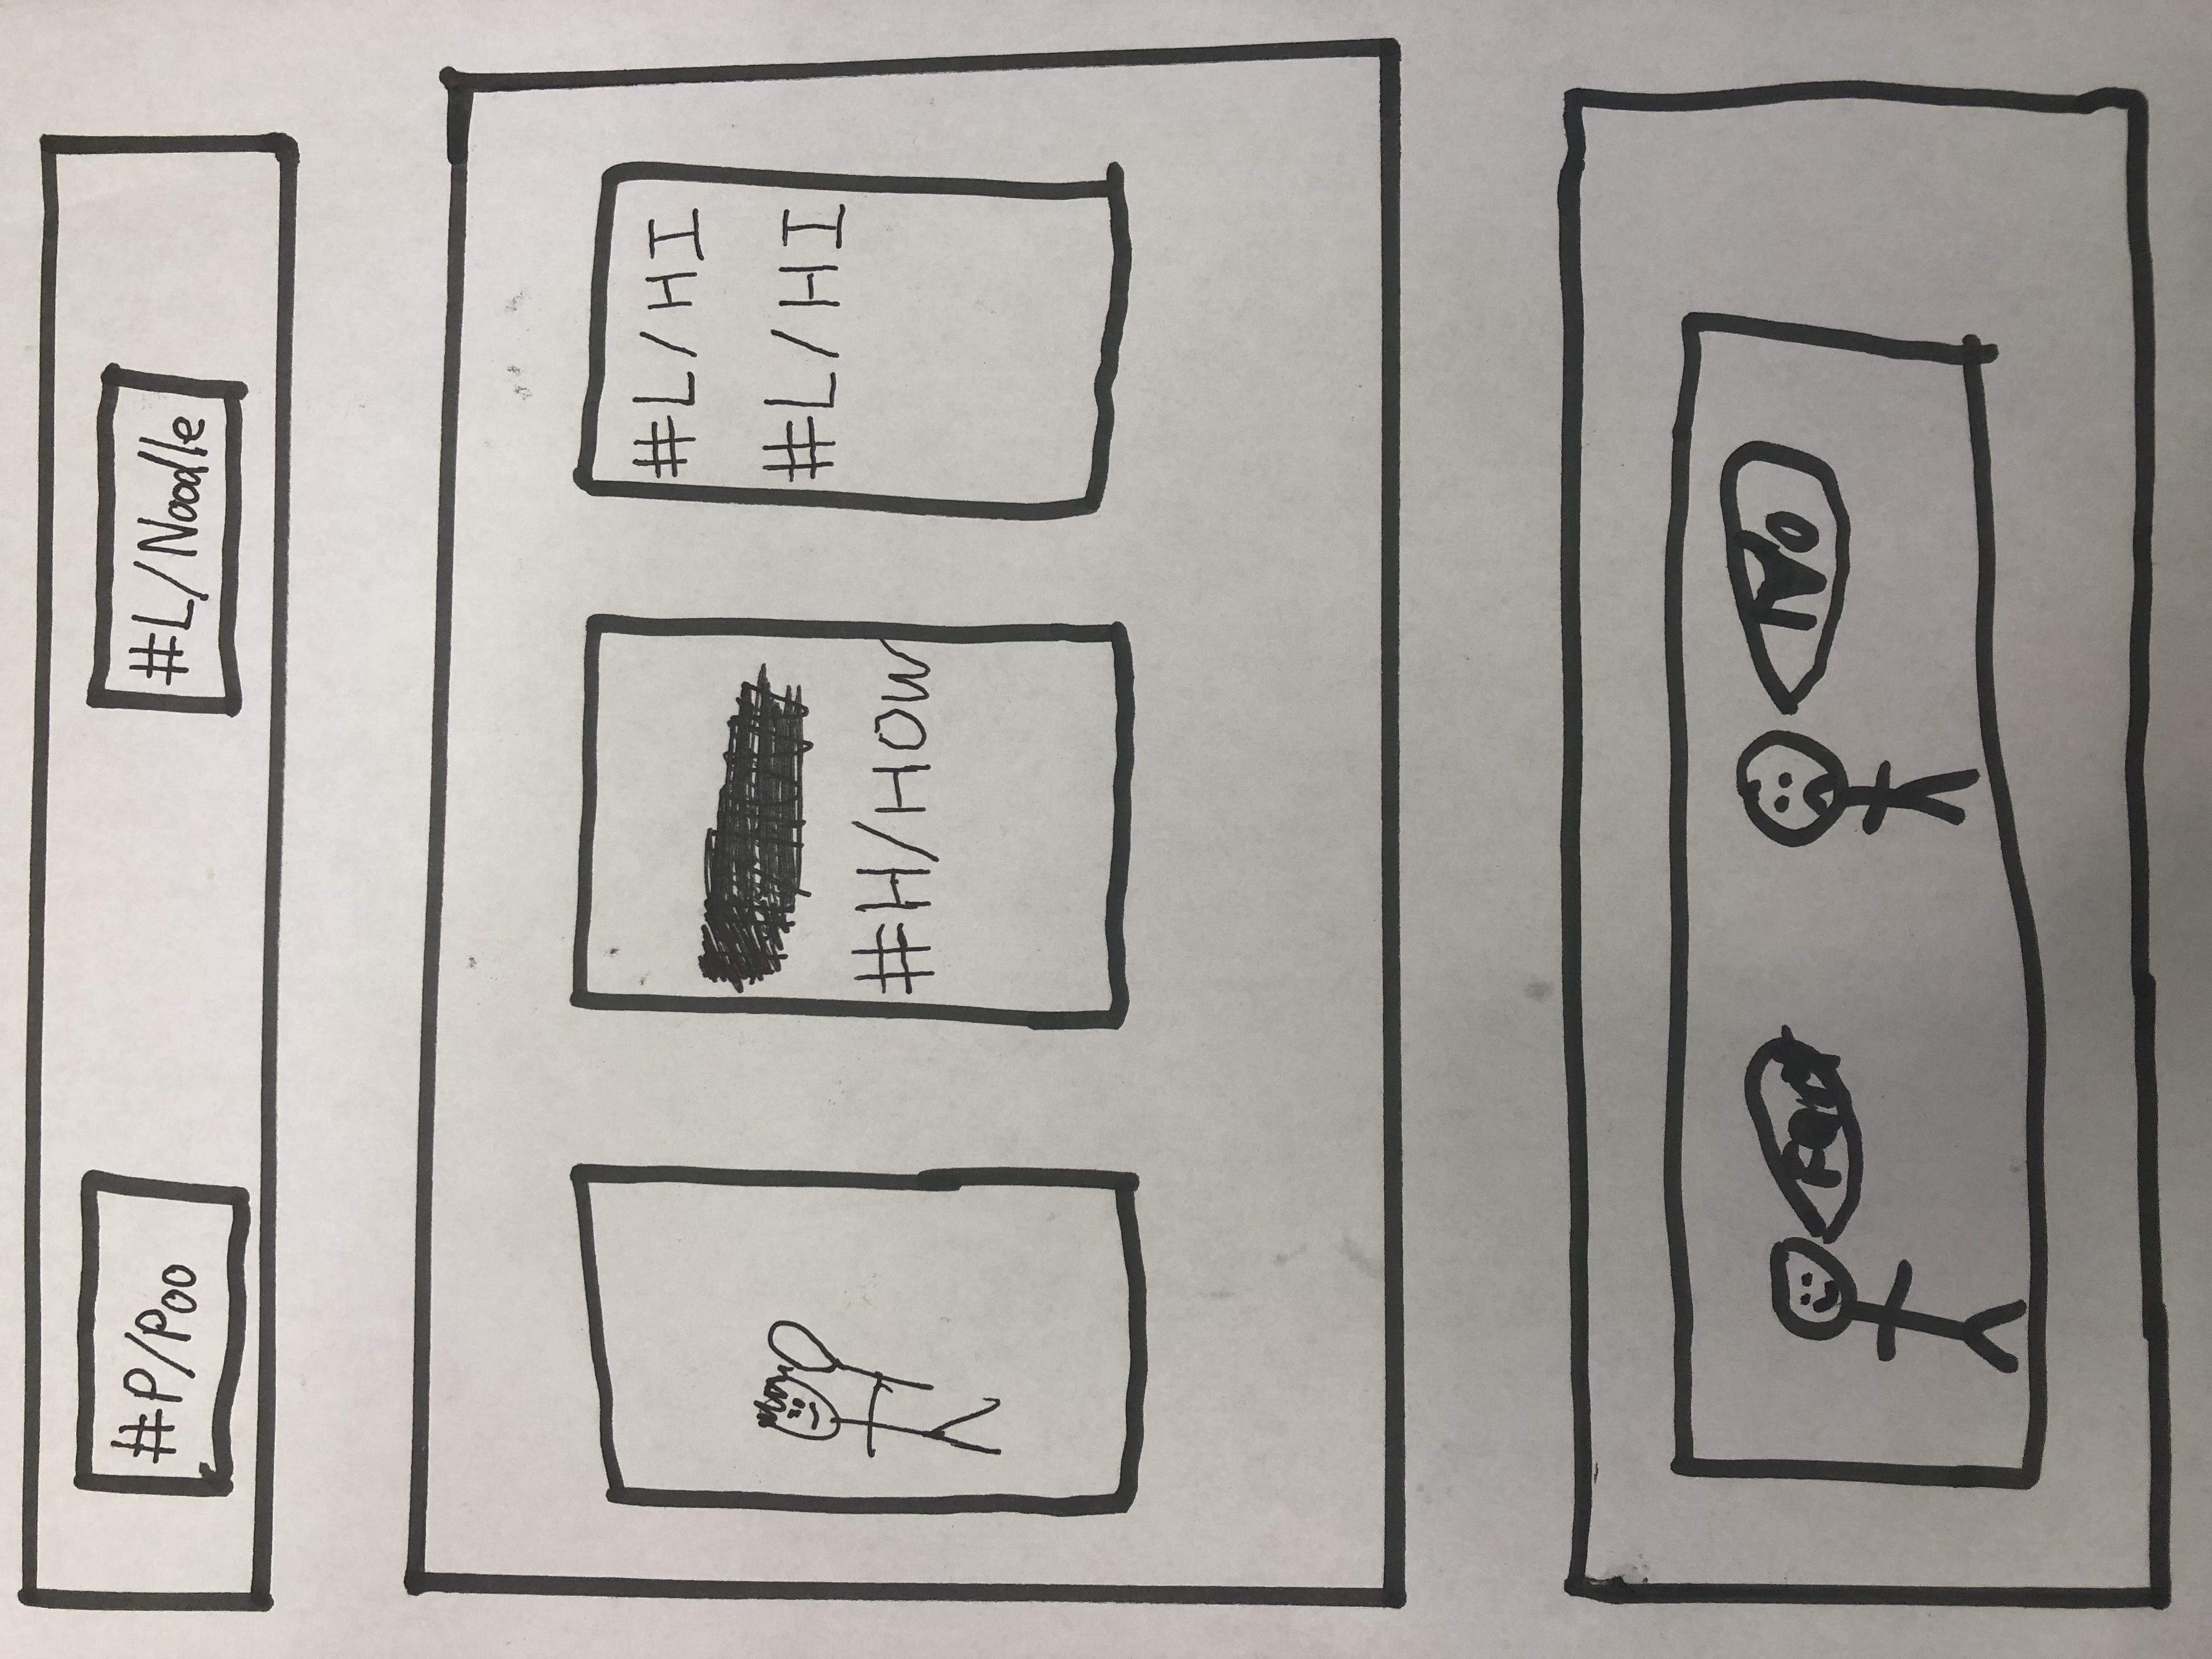 #P/Poo
#L/Noodle
#H/HOW
#L/HI
#L/HI
NO